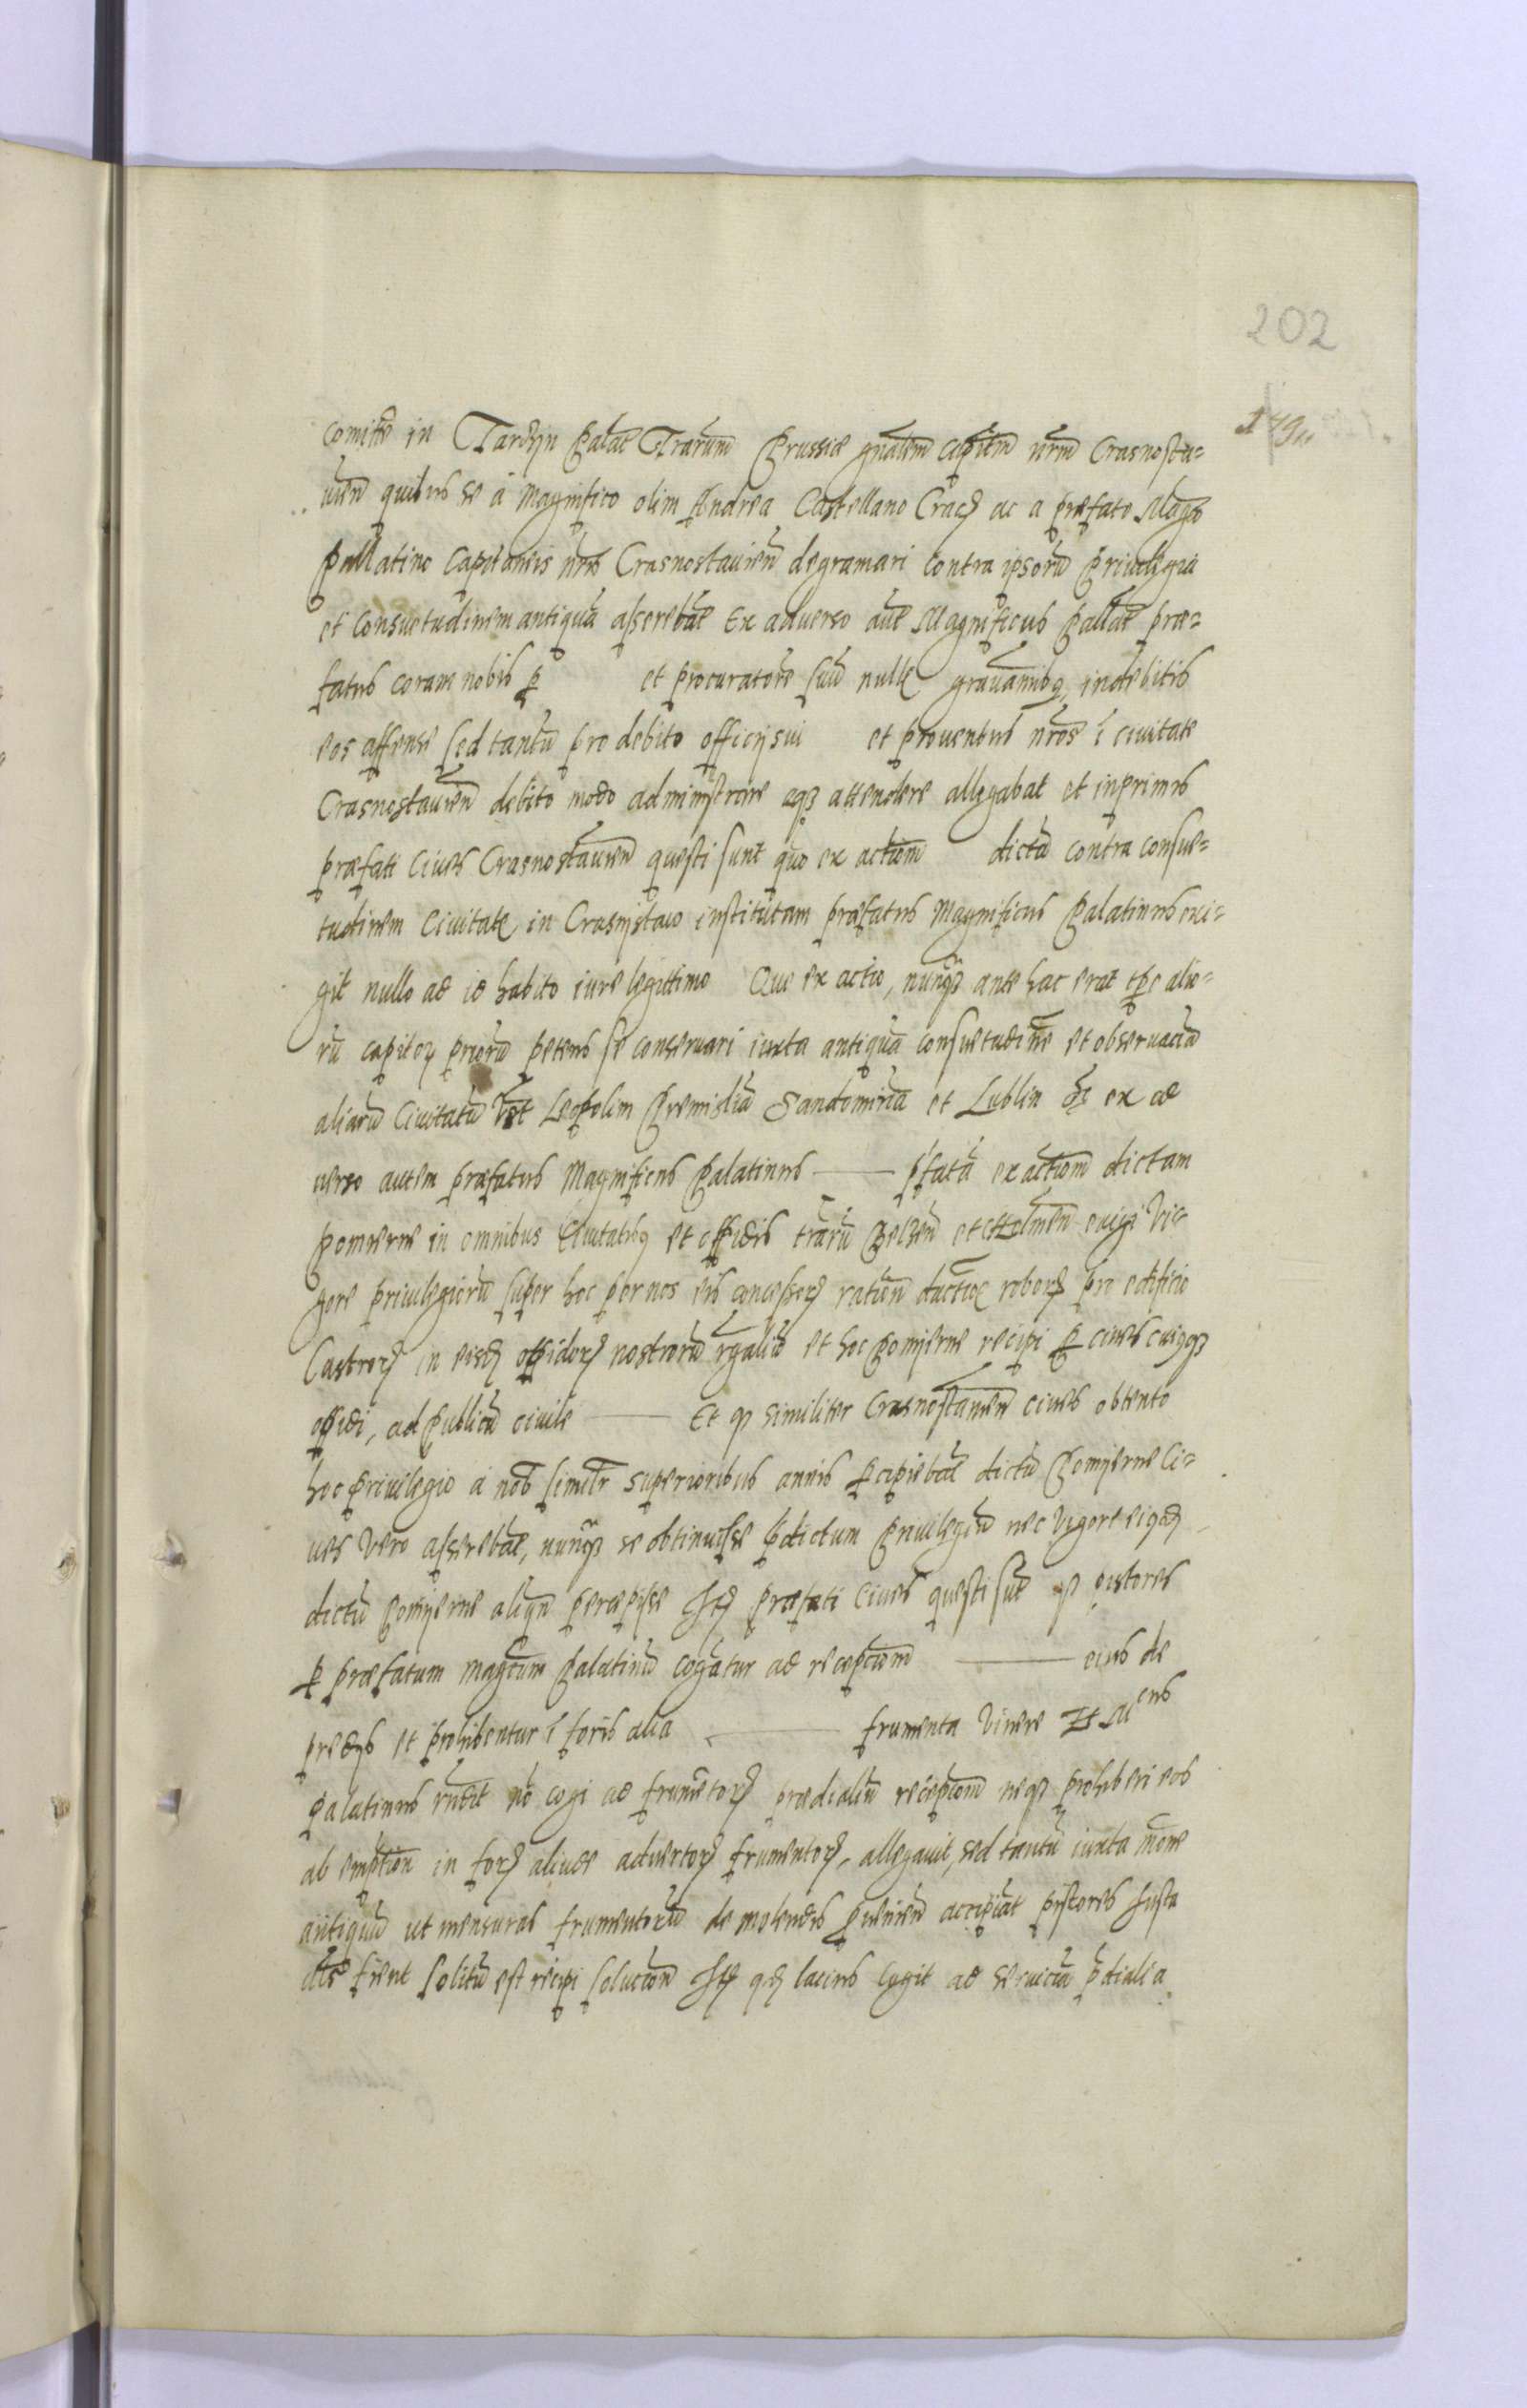 202
179
Comite in Tarczyn Palat Trarum Prussiæ gnalem capitm nrm Crasnosta-
uien quibus se a Magnifico olim Andrea Castellano Crac ac a præfato Magco
Pallatino Capitaneis nris Crasnostauien degrauari contra ipsorū Priuilegia
et Consuetudinem antiquā asserebāt Ex aduerso aūt Magnificus Pallat præ-
fatus coram nobis p et procuratore suū nullis grauaminibq indebitis
eos affense sed tantū pro debito officij sui et prouentus nros ī ciuitate
Crasnostauien debito modo administrare aqz attendere allegabat et inprimis
præfati Ciues Crasnostauien questi sunt quo exactiom dictā contra consue-
tudinem Ciuitatis in Crasnijstaw institutam præfatus Magnificus Palatinus exi-
git nullo ad id habito iure legittimo Que exactio, nunqz ante hac erat tpe alio-
rū capiteoz priorū petens se conseruari iuxta antiquā consuetudinē et obseruaciā
aliarū Ciuitatū vt Leopolim Premisliā Sandomiriā et Lublin ex ad
uerso autem præfatus Magnificus Palatinus — pfatā exactiom dictam
Pomierne in omnibus Ciuitatibq et oppidis trarū Belzen et Chelmen exigi Vi-
gore priuilegiorū super hoc per nos eis concessorz ratiom ductioē roborz pro edificio
Castrorz in eisd oppidorz nostrorū regaliū et hoc Pomyerne recipi p ciues cuiqqz
oppidi, ad Publicū ciuile — Et qz similiter Crasnostauien ciues obtento
hoc Priuilegio a nob similr superioribus annis pcipiebāt dictū Pomyerne Ci-
ues Vero asserebāt, nunqz se obtinuisse pdictum Priuilegiū nec Vigore eiqd
dictū Pomyerne aliqn percepisse Itē Præfati Ciues questi sūt qz pistores
p præfatum magcum Palatinū cogātur ad recepciom — eius de
predijs et prohibentur ī foris alia — frumenta Vinere Et Mcus
Palatinus rndit nō cogi ad frumētorz prædialiū recepciom neqz prohiberi eos
ab emptiom in forz aliude aduectorz frumentorz, allegauit, sed tantū iuxta morē
antiquū ut mensuras frumentorū de molendis puenien accipiāt pistores Iusta
fient solitū est recipi soluciom Itē qd lacius cogit ad seruicia pdialia